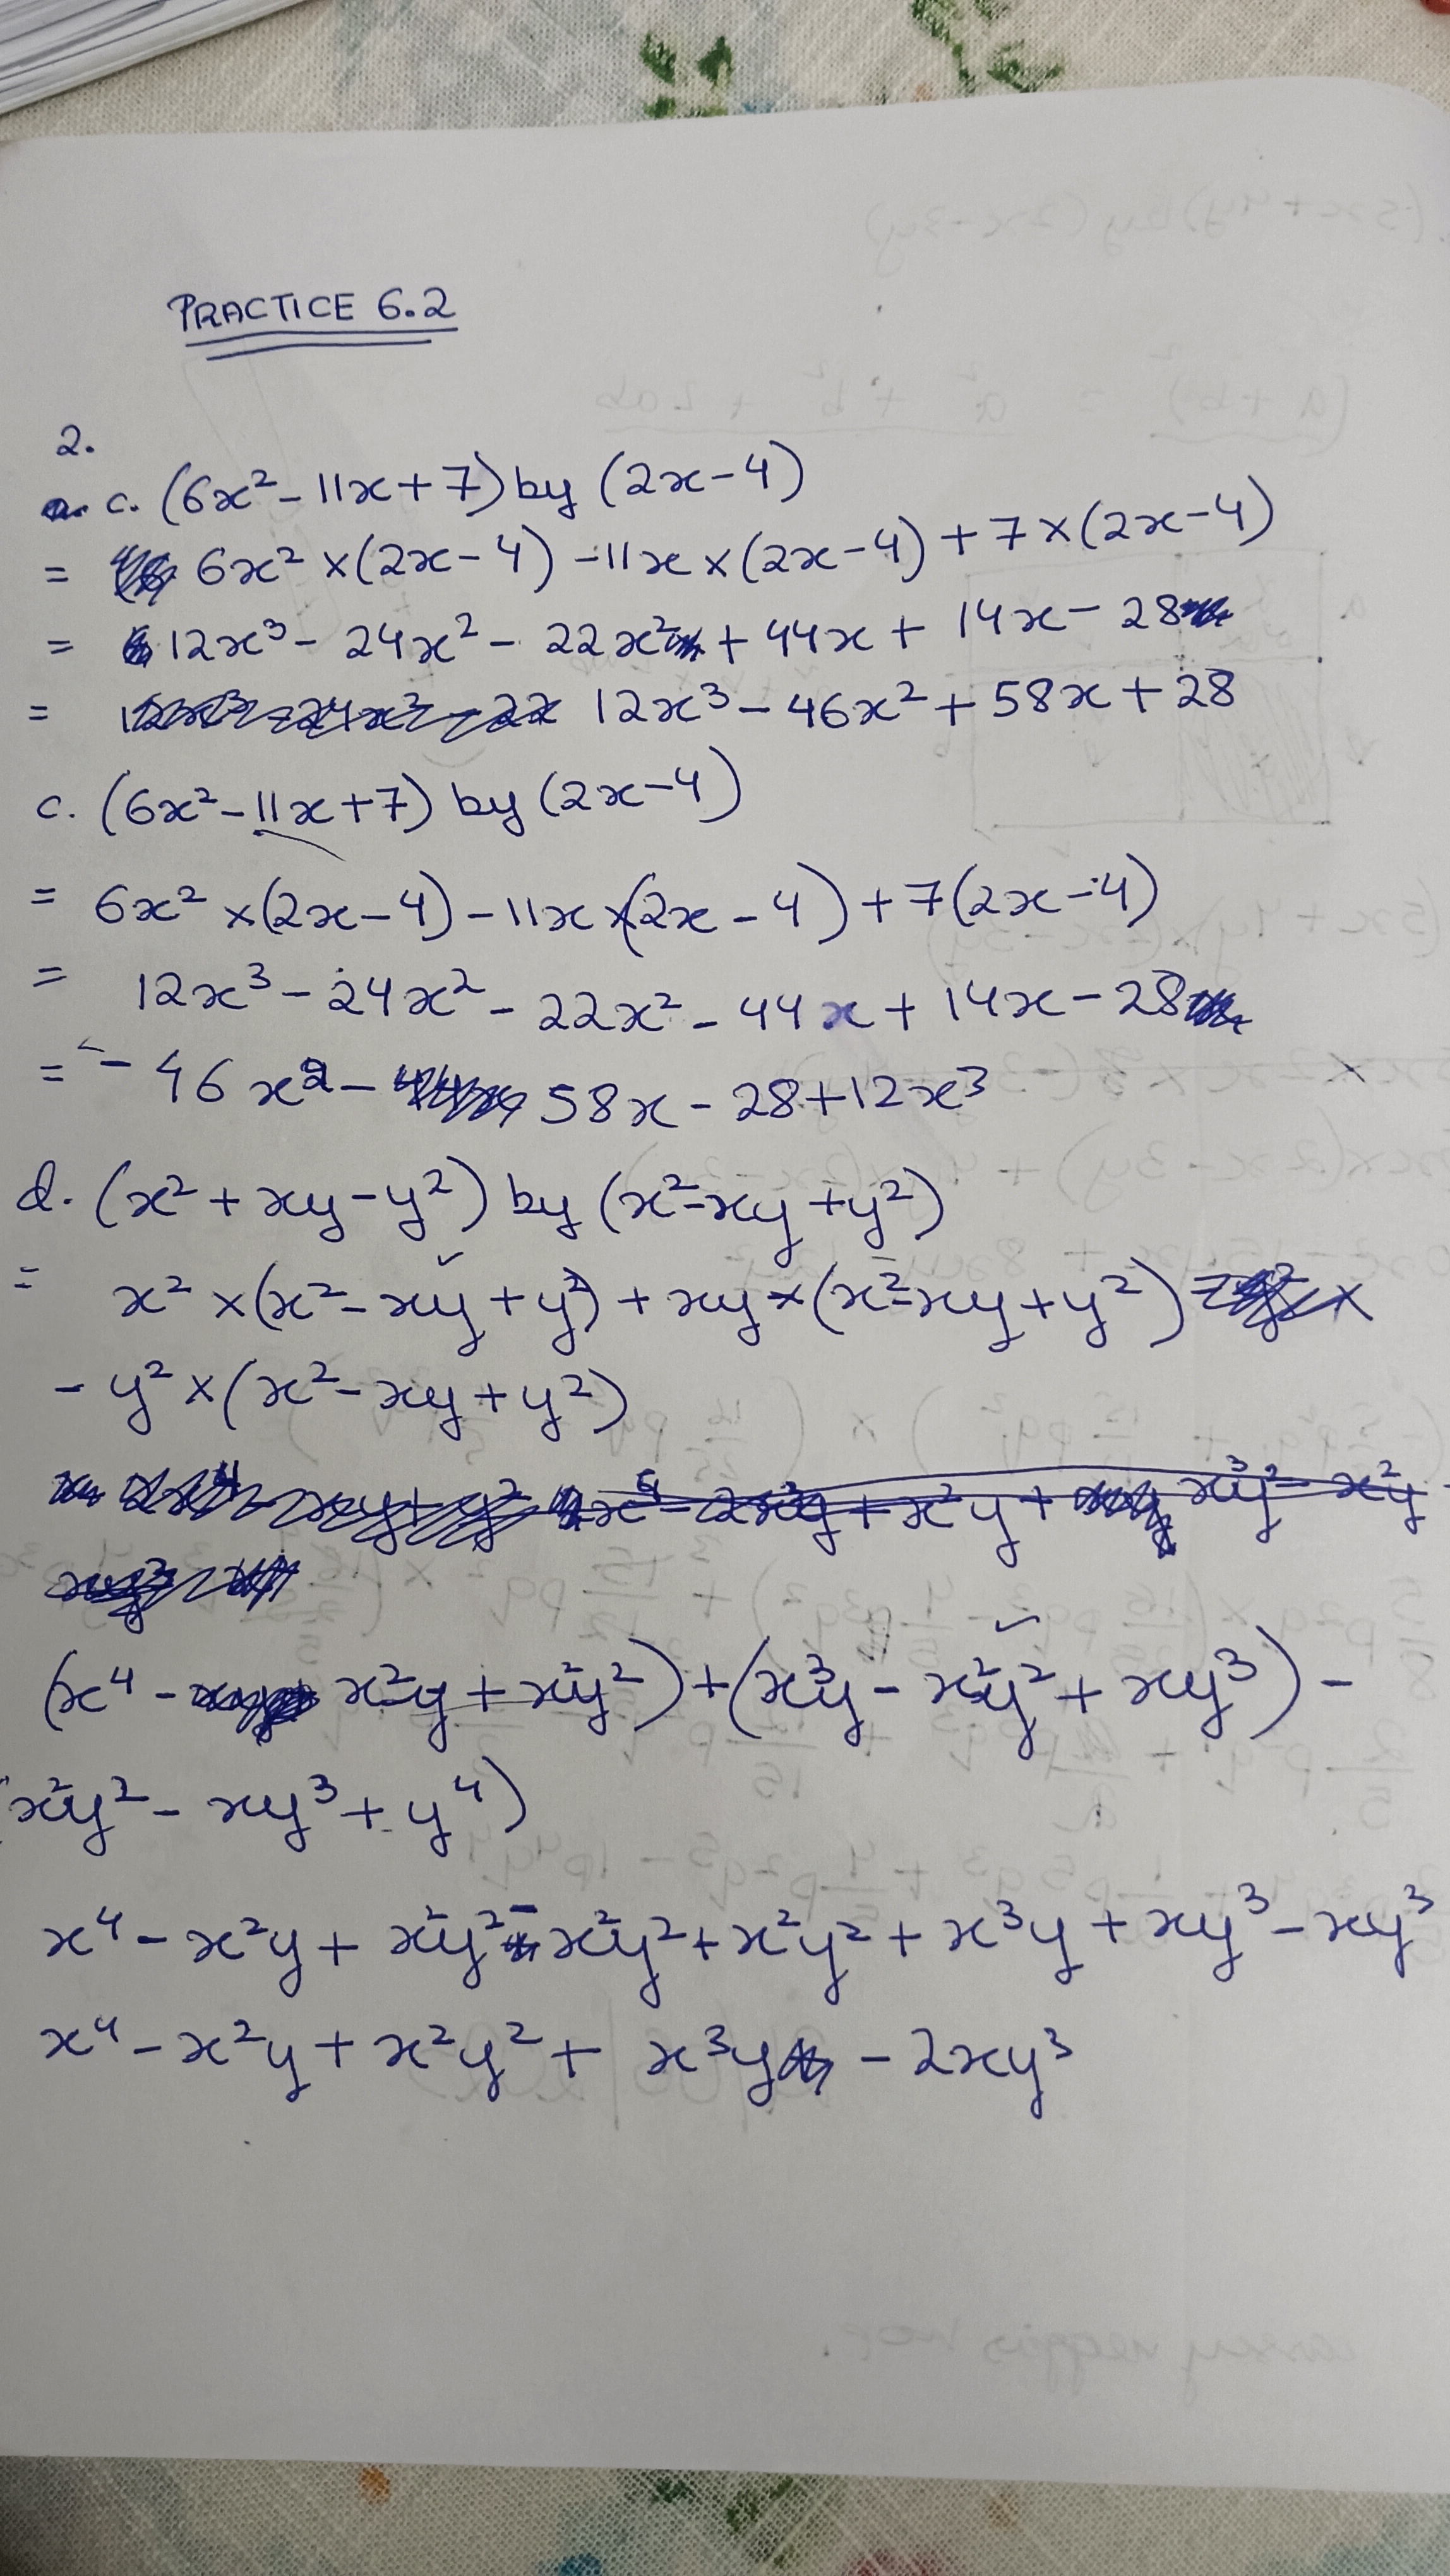 PRACTICE 6.2
2.
c. (6x² - 11x + 7) by (2x - 4)
= 6x² × (2x - 4) - 11x × (2x - 4) + 7 × (2x - 4)
= 12x³ - 24x² - 22x² + 44x + 14x - 28
= 12x³ - 46x² + 58x + 28
c. (6x² - 11x + 7) by (2x - 4)
= 6x² × (2x - 4) - 11x × (2x - 4) + 7(2x - 4)
= 12x³ - 24x² - 22x² - 44x + 14x - 28
= - 46x² - 58x - 28 + 12x³
d. (x² + xy - y²) by (x² - xy + y²)
= x² × (x² - xy + y²) + xy × (x² - xy + y²)
- y² × (x² - xy + y²)
(x⁴ - x²y + x²y²) + (x³y - x²y² + xy³) -
x²y² - xy³ + y⁴)
x⁴ - x²y + x²y² - x²y² + x²y² + x³y + xy³ - xy³
x⁴ - x²y + x²y² + x³y - 2xy³